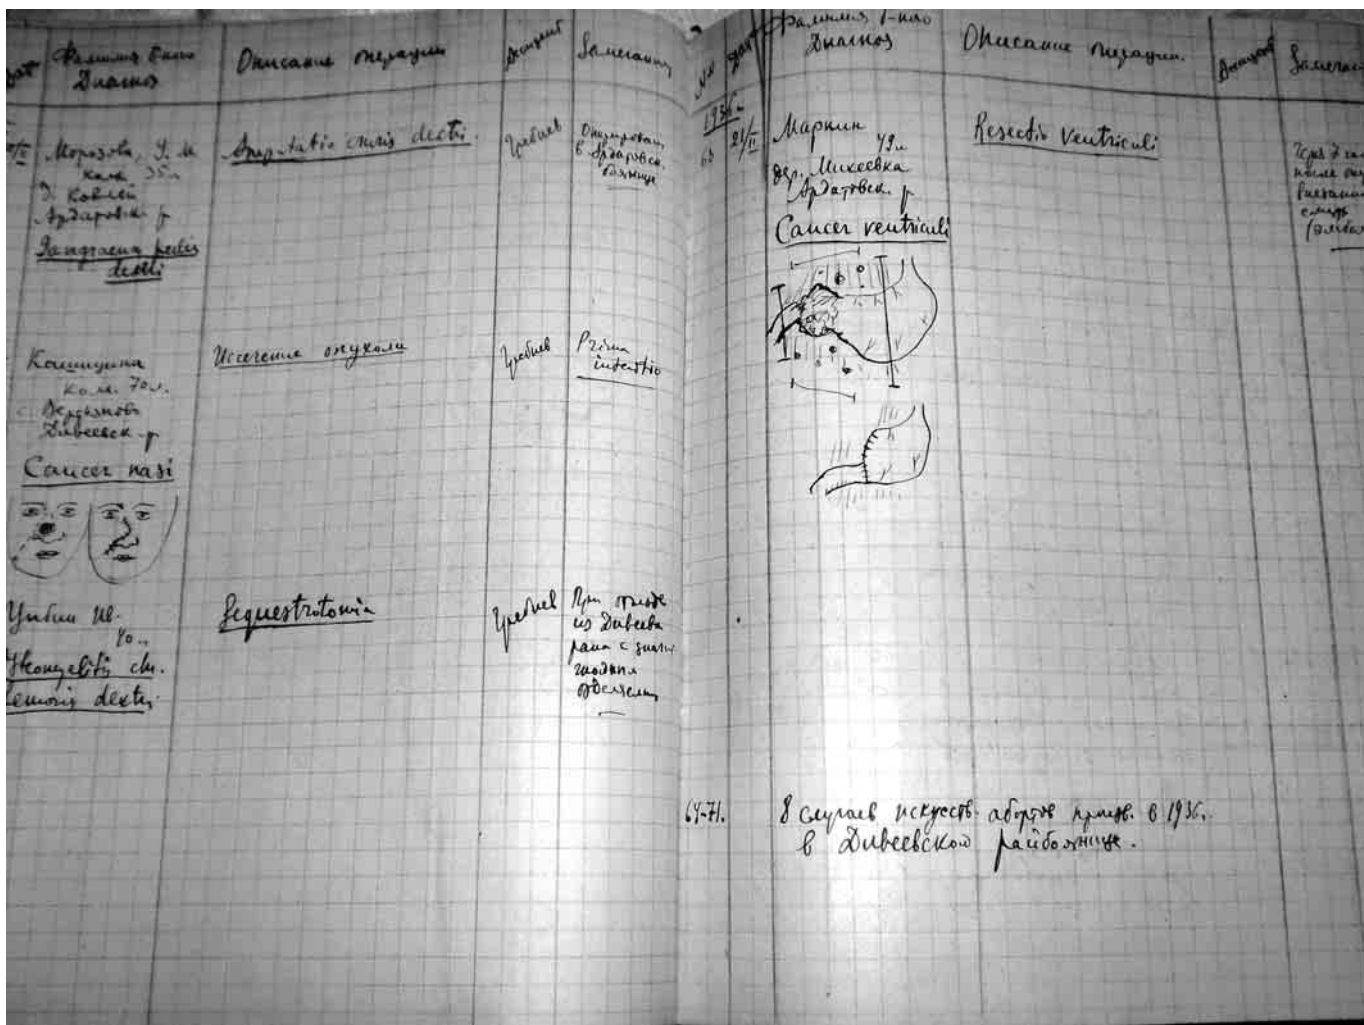 Фамилия б-ного
Диагноз
Описание операции
Ассистент
Замечания
Морозова, У. М
колх. 35 л
Ардатовск. р
Gangraena pedis
dextri
Amputatio cruris dextri.
Гребнев
Оперирован
в Ардатовск.
больнице
колх. 70 л.
Дивеевск. р
Cancer nasi
Иссечение опухоли
Гребнев
Prima
intentio
40 л.
Osteomyelitis chr.
femoris dextri.
Sequestrotomia
Гребнев
При отъезде
из Дивеева
рана с
гнойным
отделяем
№№
Дата
Фамилия б-ного
Диагноз
Описание операции.
Ассистент
Замечан
1936 г.
63
21/II
Маркин
49 л
дер. Михеевка
Ардатовск. р
Cancer ventriculi
Resectio ventriculi
после
64-71.
8 случаев искусств. абортов произв. в 1936 г.
в Дивеевской райбольнице.